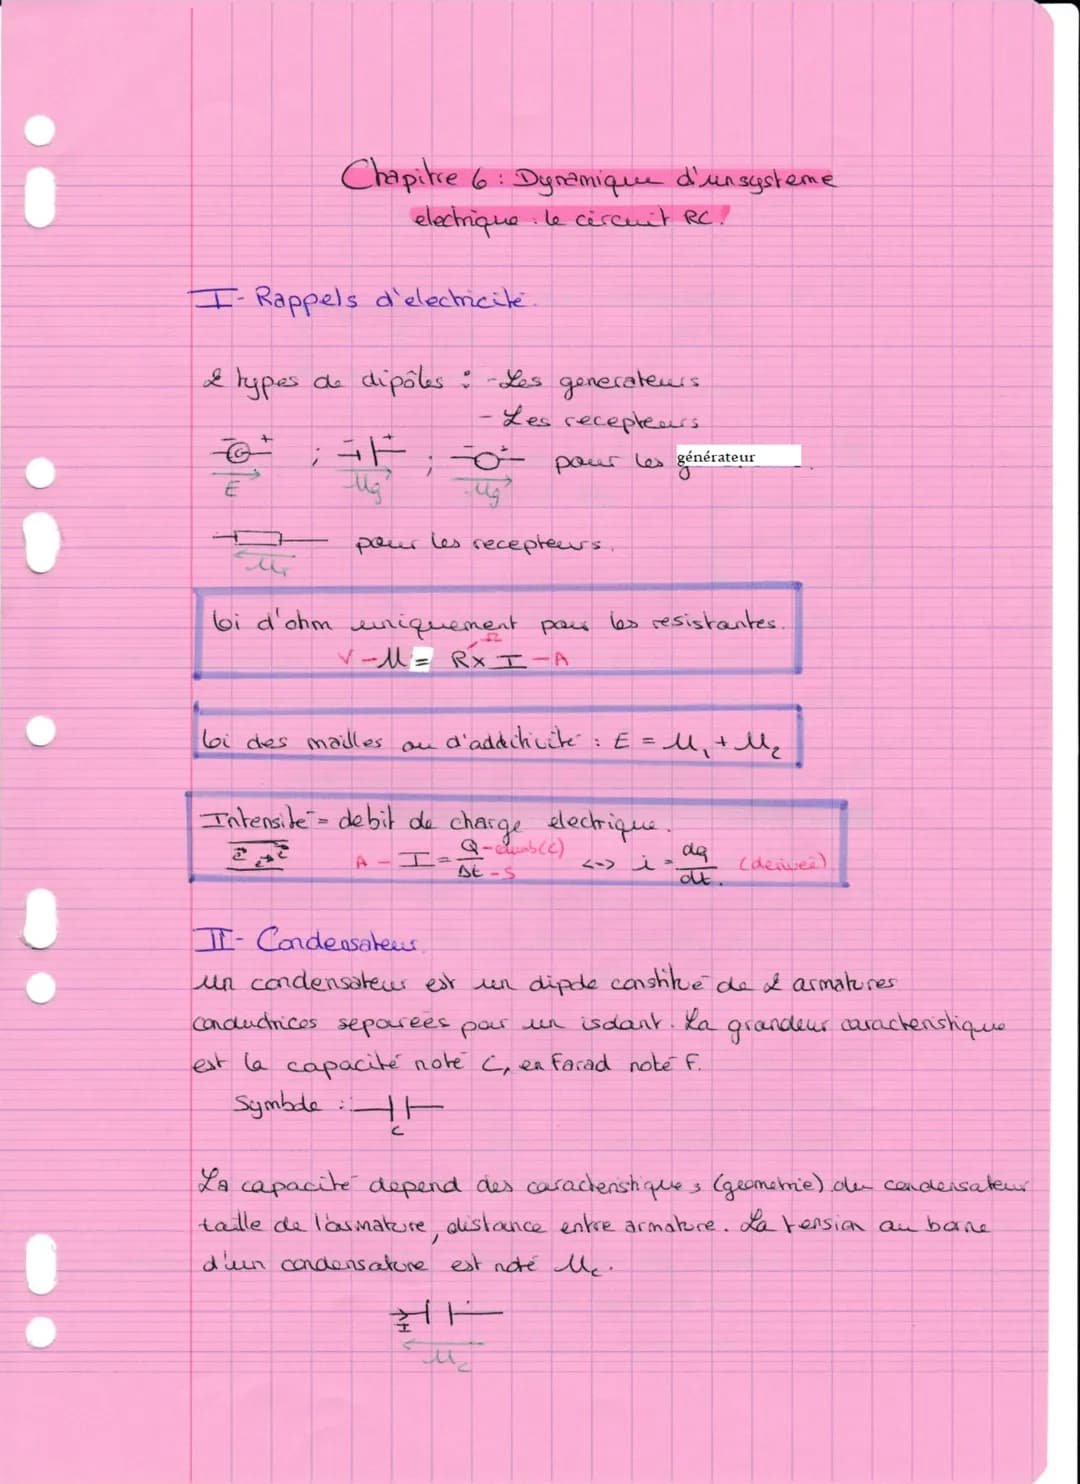 Chapitre 6 : Dynamique d'un systeme
electrique : le circuit RC.
I - Rappels d'electricité.
2 types de dipôles : - Les generateurs
- Les recepteurs
- + ; - + ; - + pour les générateur
E Ug Ug
pour les recepteurs.
Ur
loi d'ohm uniquement pour les resistantes.
Ω
V - U = R x I - A
loi des mailles ou d'additivité : E = U₁ + U₂
Intensité = debit de charge electrique.
A - I = Q/Δt - S <=> i = dq/dt. (derivée)
II - Condensateur.
un condensateur est un dipole constitué de 2 armatures
conductrices separées par un isolant. La grandeur caracteristique
est la capacité noté C, en Farad noté F.
Symbole :
C
La capacité depend des caracteristiques (geometrie) du condensateur
taille de l'armature, distance entre armature. La tension au borne
d'un condensature est noté Uc.
I
Uc